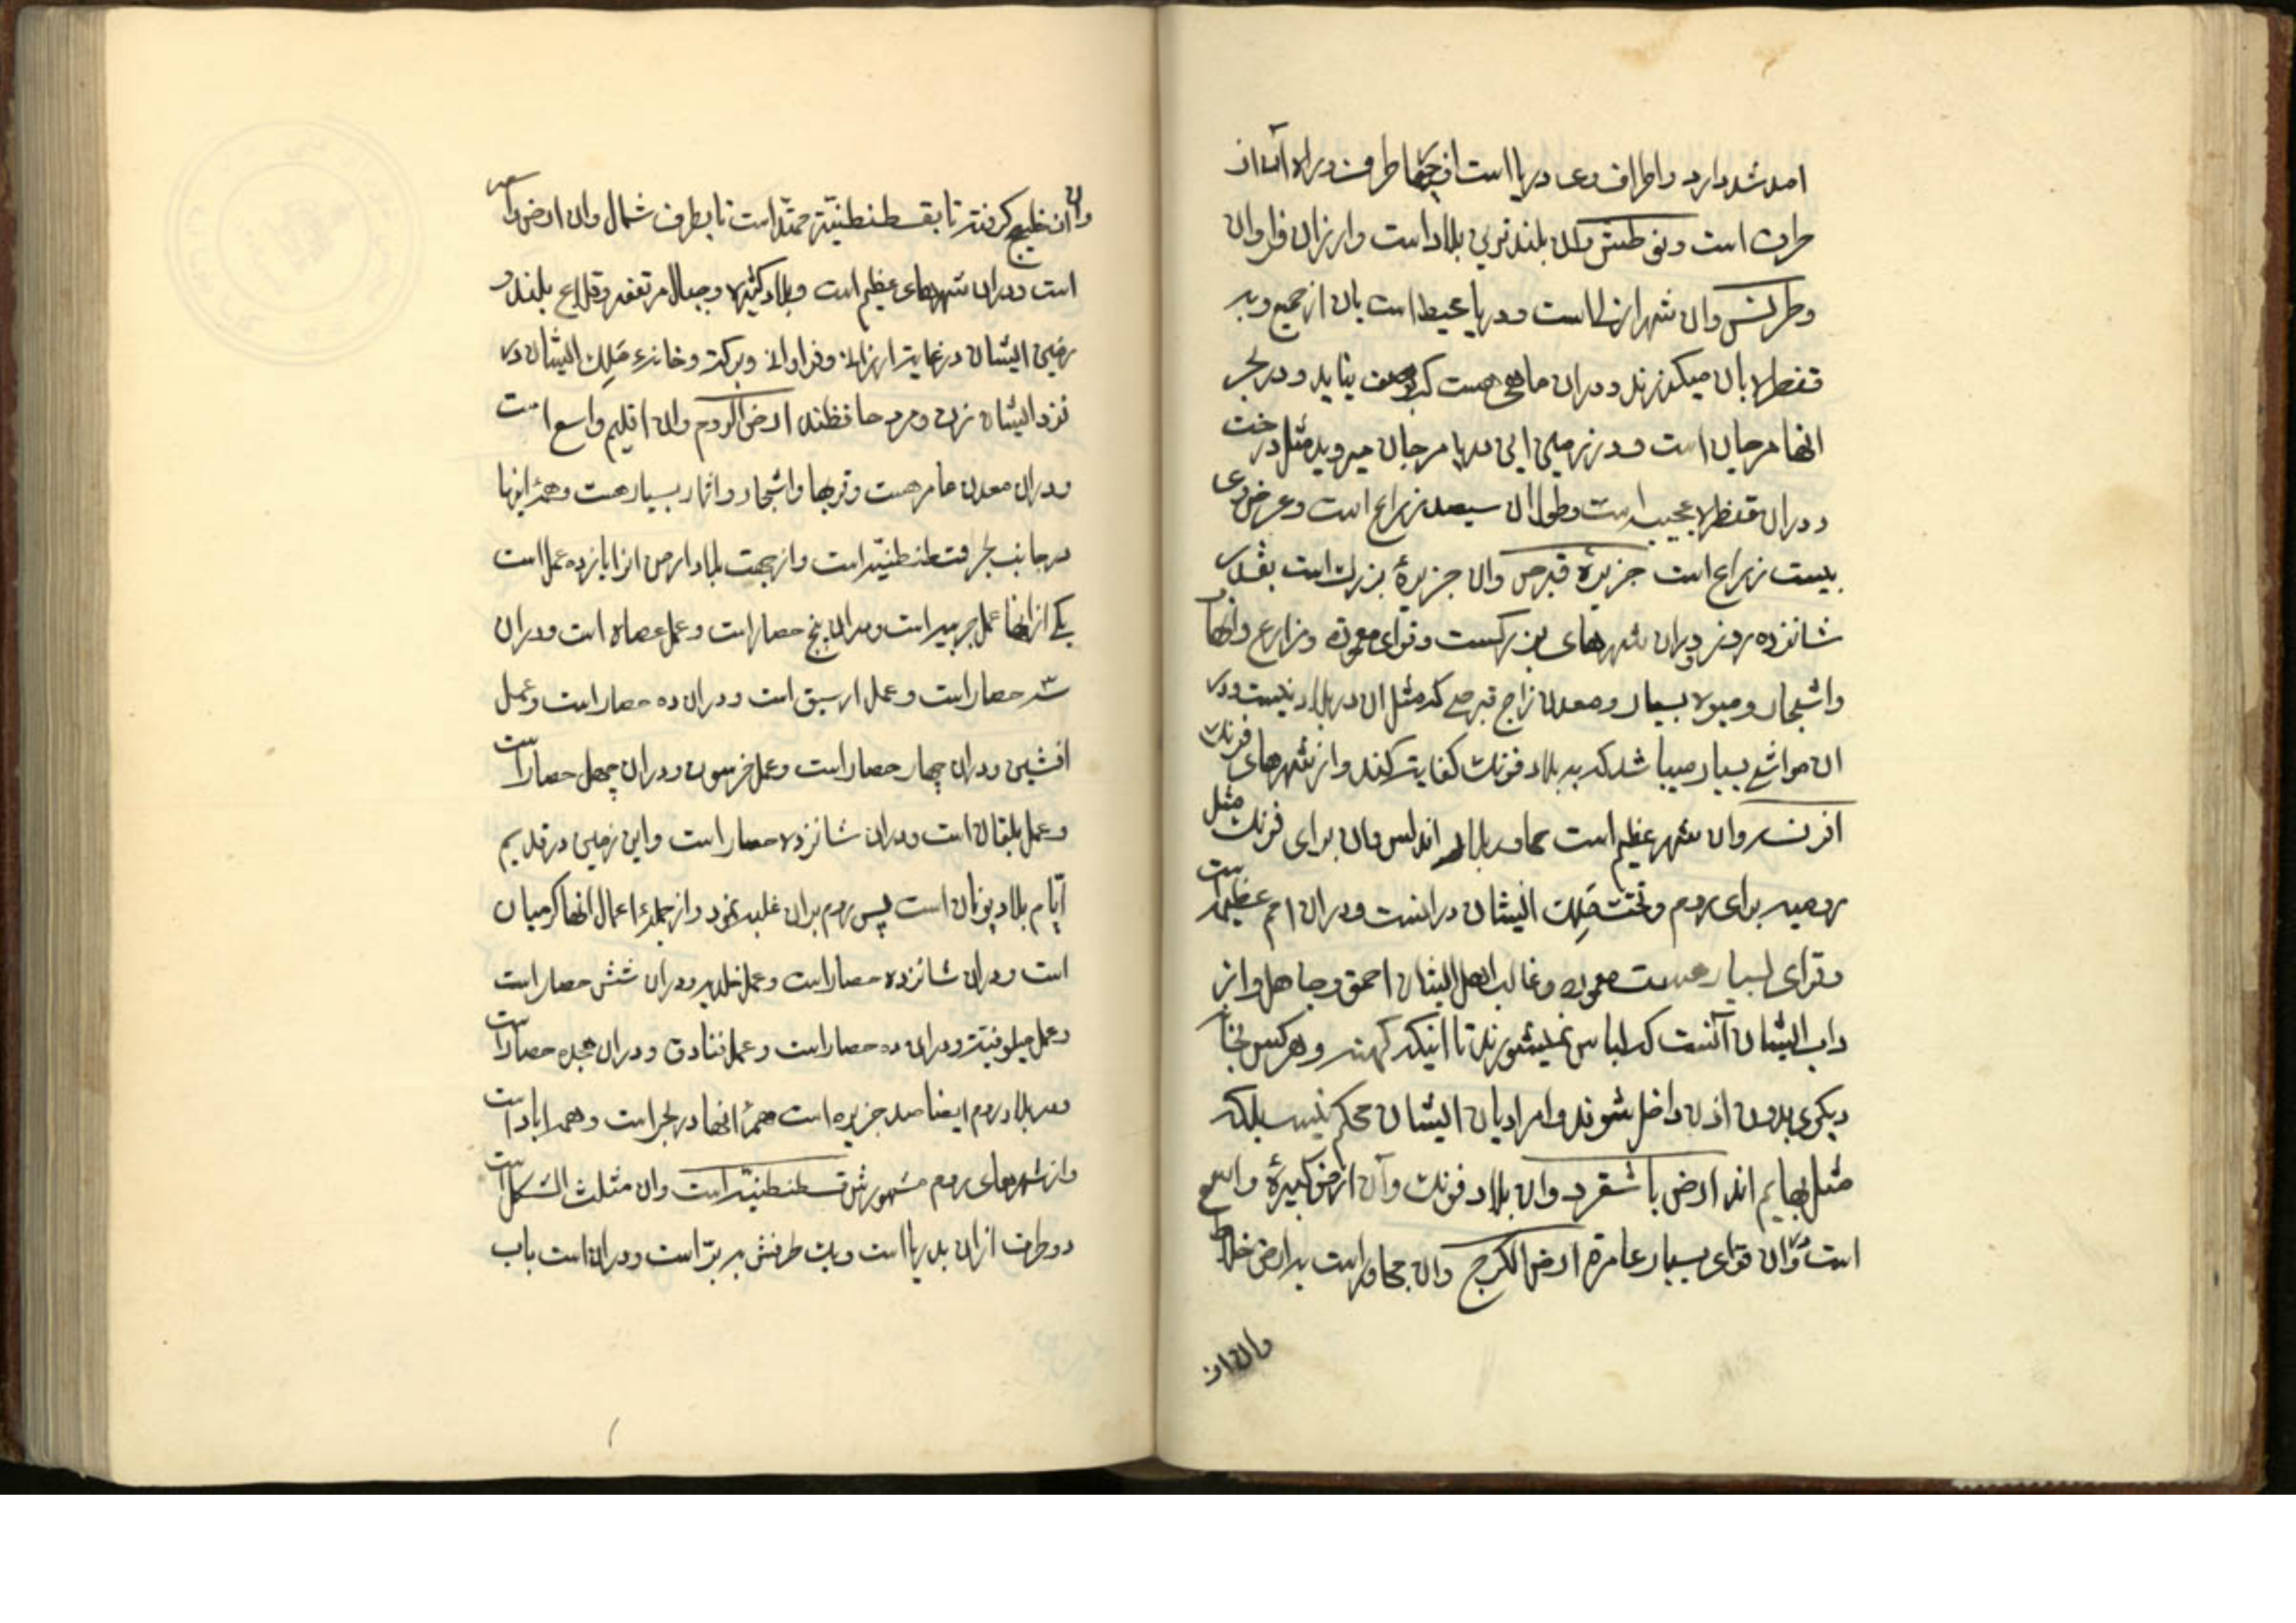 امد شد دارد و اطراف وی دریا است از چهار طرف و راه آن از
طرف است و بلندترین بلاد است و ارزان فراوان
و ان شهر است و دریا محیط است بان از جمیع و بد
قنطره بان میکذرند و دران ماهی هست که بوصف نیاید و در بحر
انها مرجان است و در زمین این دریا مرجان میروید مثل درخت
و دران قنطره عجیب است و طول ان سیصد زراع است و عرض وی
بیست زراع است جزیرهٔ قبرص وان جزیرهٔ بزرک است بقدر
شانزده روز و دران شهرهای بزرکست و قرای معموره و مزارع و انهار
و اشجار و میوه بسیار و معدن زاج قبرصی که مثل ان در بلاد نیست و در
ان مواشی بسیار میباشد که به بلاد فرنک کفایت کند و از شهرهای فرنک
افرنسه وان شهر عظیم است مجاور بلاد اندلس وان برای فرنک مثل
رومیه برای روم و تخت ملک ایشان درانست و دران امم عظیمه است
و قرای بسیار هست معموره و غالب اهل ایشان احمق و جاهل و از
داب ایشان آنست که لباس نمیشورند تا اینکه کهنه و هر کس بخانه
دیکری بدون اذن داخل شوند و امر ادیان ایشان محکم نیست بلکه
مثل بهایم اند ارض باشقرد وان بلاد فرنک و آن ارض کبیرهٔ واسع
است و دران قرای بسیار عامرة ارض الکرج وان مجاور است به ارض خلاط
وان از
وان از خلیج کرفته تا بقسطنطنیّه ممتد است تا بطرف شمال وان ارض واسعه
است و دران شهرهای عظیم است و بلاد کثیره و جبال مرتفعه و قلاع بلند و
زمین ایشان در غایت ارزانی و فراوانی و برکت و خانهء ملک ایشان در
نزد ایشان زن و مرد حافظند ارض الروم وان اقلیم واسع است
و دران معدن عامر هست و قریها و اشجار و اثمار بسیار هست و همهٔ اینها
در جانب بحر قسطنطنیّه است و از جهت بلاد ارمن انرا یازده عمل است
یکی از انها عمل است و دران پنج حصار است و عمل عصاه است و دران
سه حصار است و عمل ارسیق است و دران ده حصار است و عمل
افشین و دران چهار حصار است و عمل خرسون و دران چهل حصار است
و عمل بلقان است و دران شانزده حصار است و این زمین در قدیم
ایّام بلاد یونان است پس روم بران غلبه نمود و از جملهٔ اعمال انها کرمیان
است و دران شانزده حصار است و عمل خلدیه و دران شش حصار است
و عمل سلوقیّه و دران ده حصار است و عمل قنادق و دران هجده حصار است
و در بلاد روم ایضا صد جزیره است همهٔ انها در بحر است و همه اباد است
و از شهرهای روم مشهورش قسطنطنیّه است وان مثلث الشکل است
دو طرف از ان به دریا است و یک طرفش به برّ است و دران است باب